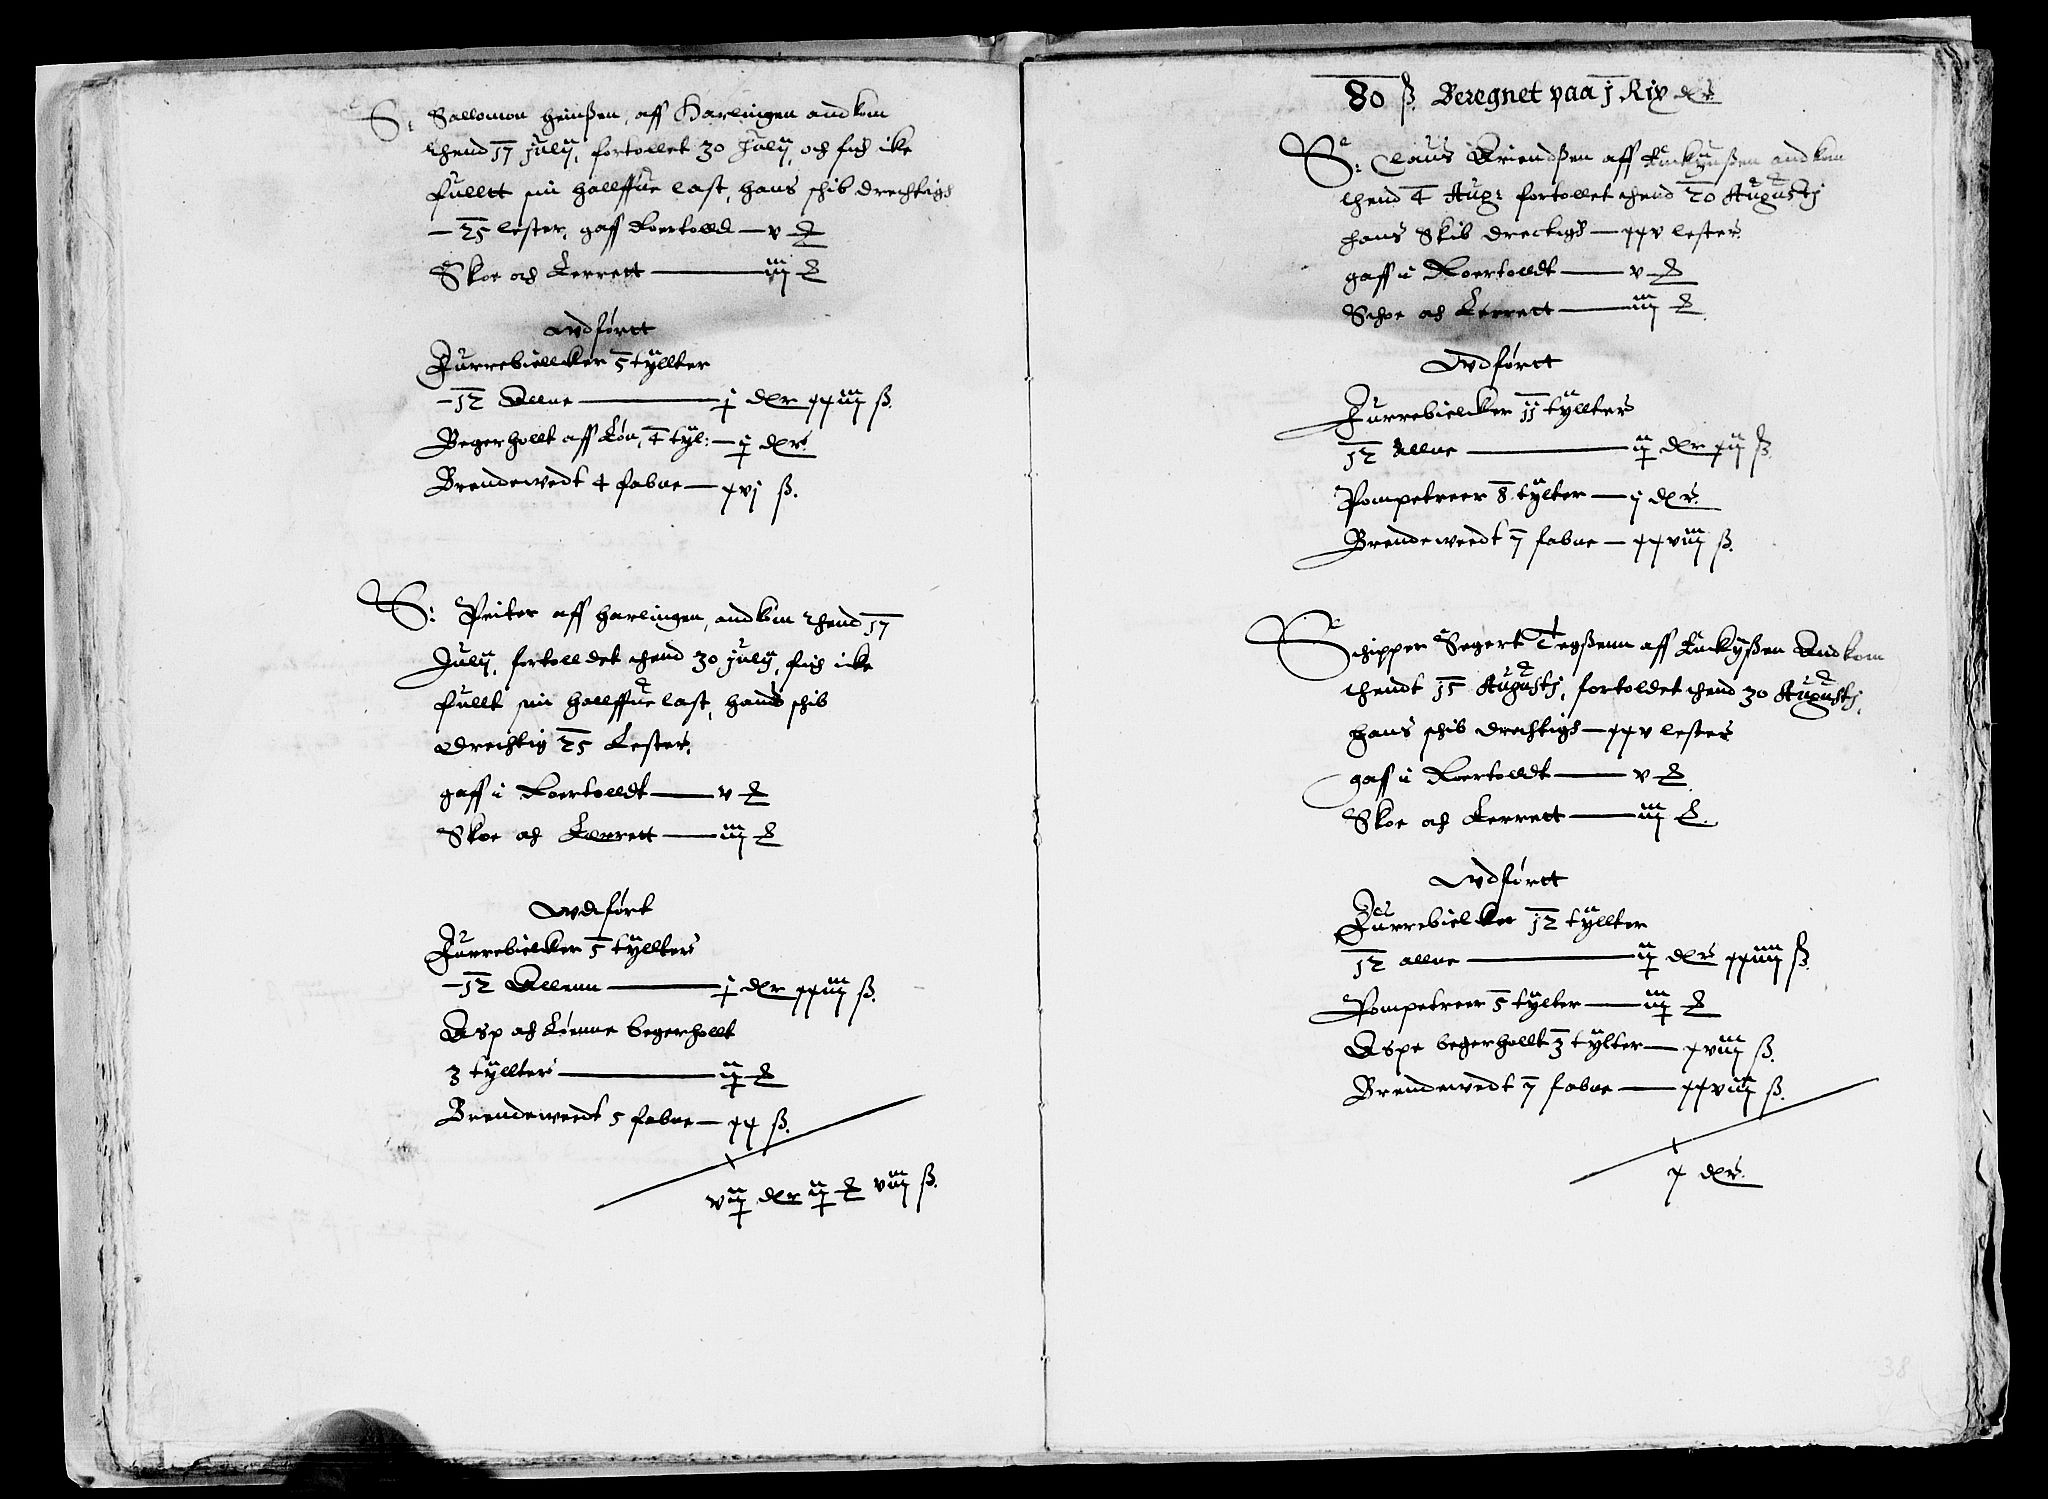 S: Sallomon Heinßen, aff Harlingen andkom
thend 17 July, fortollet 30 July, och fich icke
fullt sin halffue last, hans schib drechtigh
25 lester, gaff Roertolld — v
Skoe och Kerrett — iiij
Wdførtt
Furrebiellcker 5 tyllter
12 Allne — j dlr xxiiij ß.
Begerhollt aff Løn, 4 tyl: — j dlr.
Brendewedt 4 fabne — xvj ß.
S: Peiter aff Harlingen, andkom thend 17
July, fortolldet thend 30 July, fich icke
fullt sin hallffue last, hans schib
drechtig 25 Lester,
gaff i Roertolldt — v
Skoe och Kerrett — iiij
Wdført
Furrebielcker 5 tyllter
12 Allenn — j dlr xxiiij ß.
Asp och Lønne begerhollt
3 tyllter — iij
Brendeweedt 5 fabne — xx ß.
viij dlr iij viiij ß.
80 ß Beregnet paa j Rix dlr
S: Claus Ariendßen aff Enckhußen andkom
thend 4 Aug: fortollet thend 20 Augustj
hans Skib drecktigh — xxv lester
gaff i Roertolldt — v
Schoe och Kerrett — iiij
Wdførtt
Furrebielcker 11 tyllter
12 allne — iij dlr xij ß.
Pompetreer 8 tylter — j dlr.
Brendeweedt 7 fabne — xxviij ß.
Schipper Segert Tegßenn aff Enckhyßen Andkom
thendt 15 Augustj, fortoldet thend 30 Augustj,
hans schib drechtigh — xxv lester
gaff i Roertolldt — v
Skoe och Kerrett — iiij
Wdførtt
Furrebielcker 12 tyllter
12 allne — iij dlr xxiiij ß.
Pompetreer 5 tylter — iiij
Aspe begerhollt 3 tylter — xviij ß.
Brendewedt 7 fabne — xxviij ß.
x dlr.
38